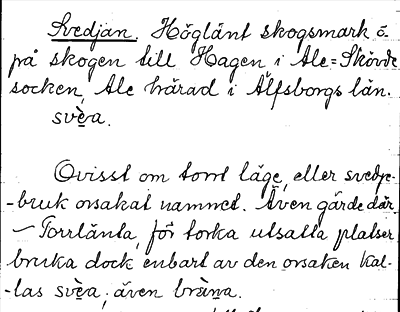 Svedjan. Höglänt skogsmark ö.
på skogen till Hagen i Ale=Skövde
socken, Ale härad i Älfsborgs län.
svèra.
Ovisst om torrt läge, eller svedje-
-bruk orsakat namnet. Även gärde där.
— Torrlänta, för torka utsatta platser
bruka dock enbart av den orsaken kal-
-las svèa, även bräna.